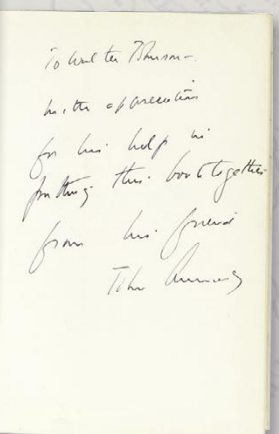 To Walter Johnson –
with appreciation
for his help in
putting this book together
from his friend
John Kennedy